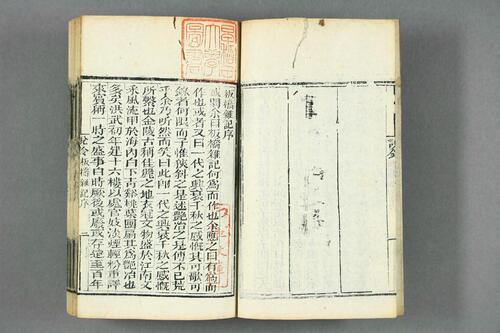 板橋雜記序
或問余曰板橋雜記何為而作也余應之曰有為而
作也或者又曰一代之興衰千秋之感慨其可歌可
錄者何限而子惟狹斜之是述艷冶之是傳不已荒
乎余乃听然而笑曰此卽一代之興衰千秋之感慨
所繫也金陵古稱佳麗之地衣冠文物盛於江南文
采風流甲於海內白下青溪桃葉團扇其為艷冶也
多矣洪武初年建十六樓以處官妓淡煙輕粉重譯
來賓稱一時之盛事自時厥後或廢或存迨至百年
說鈴 板橋雜記序